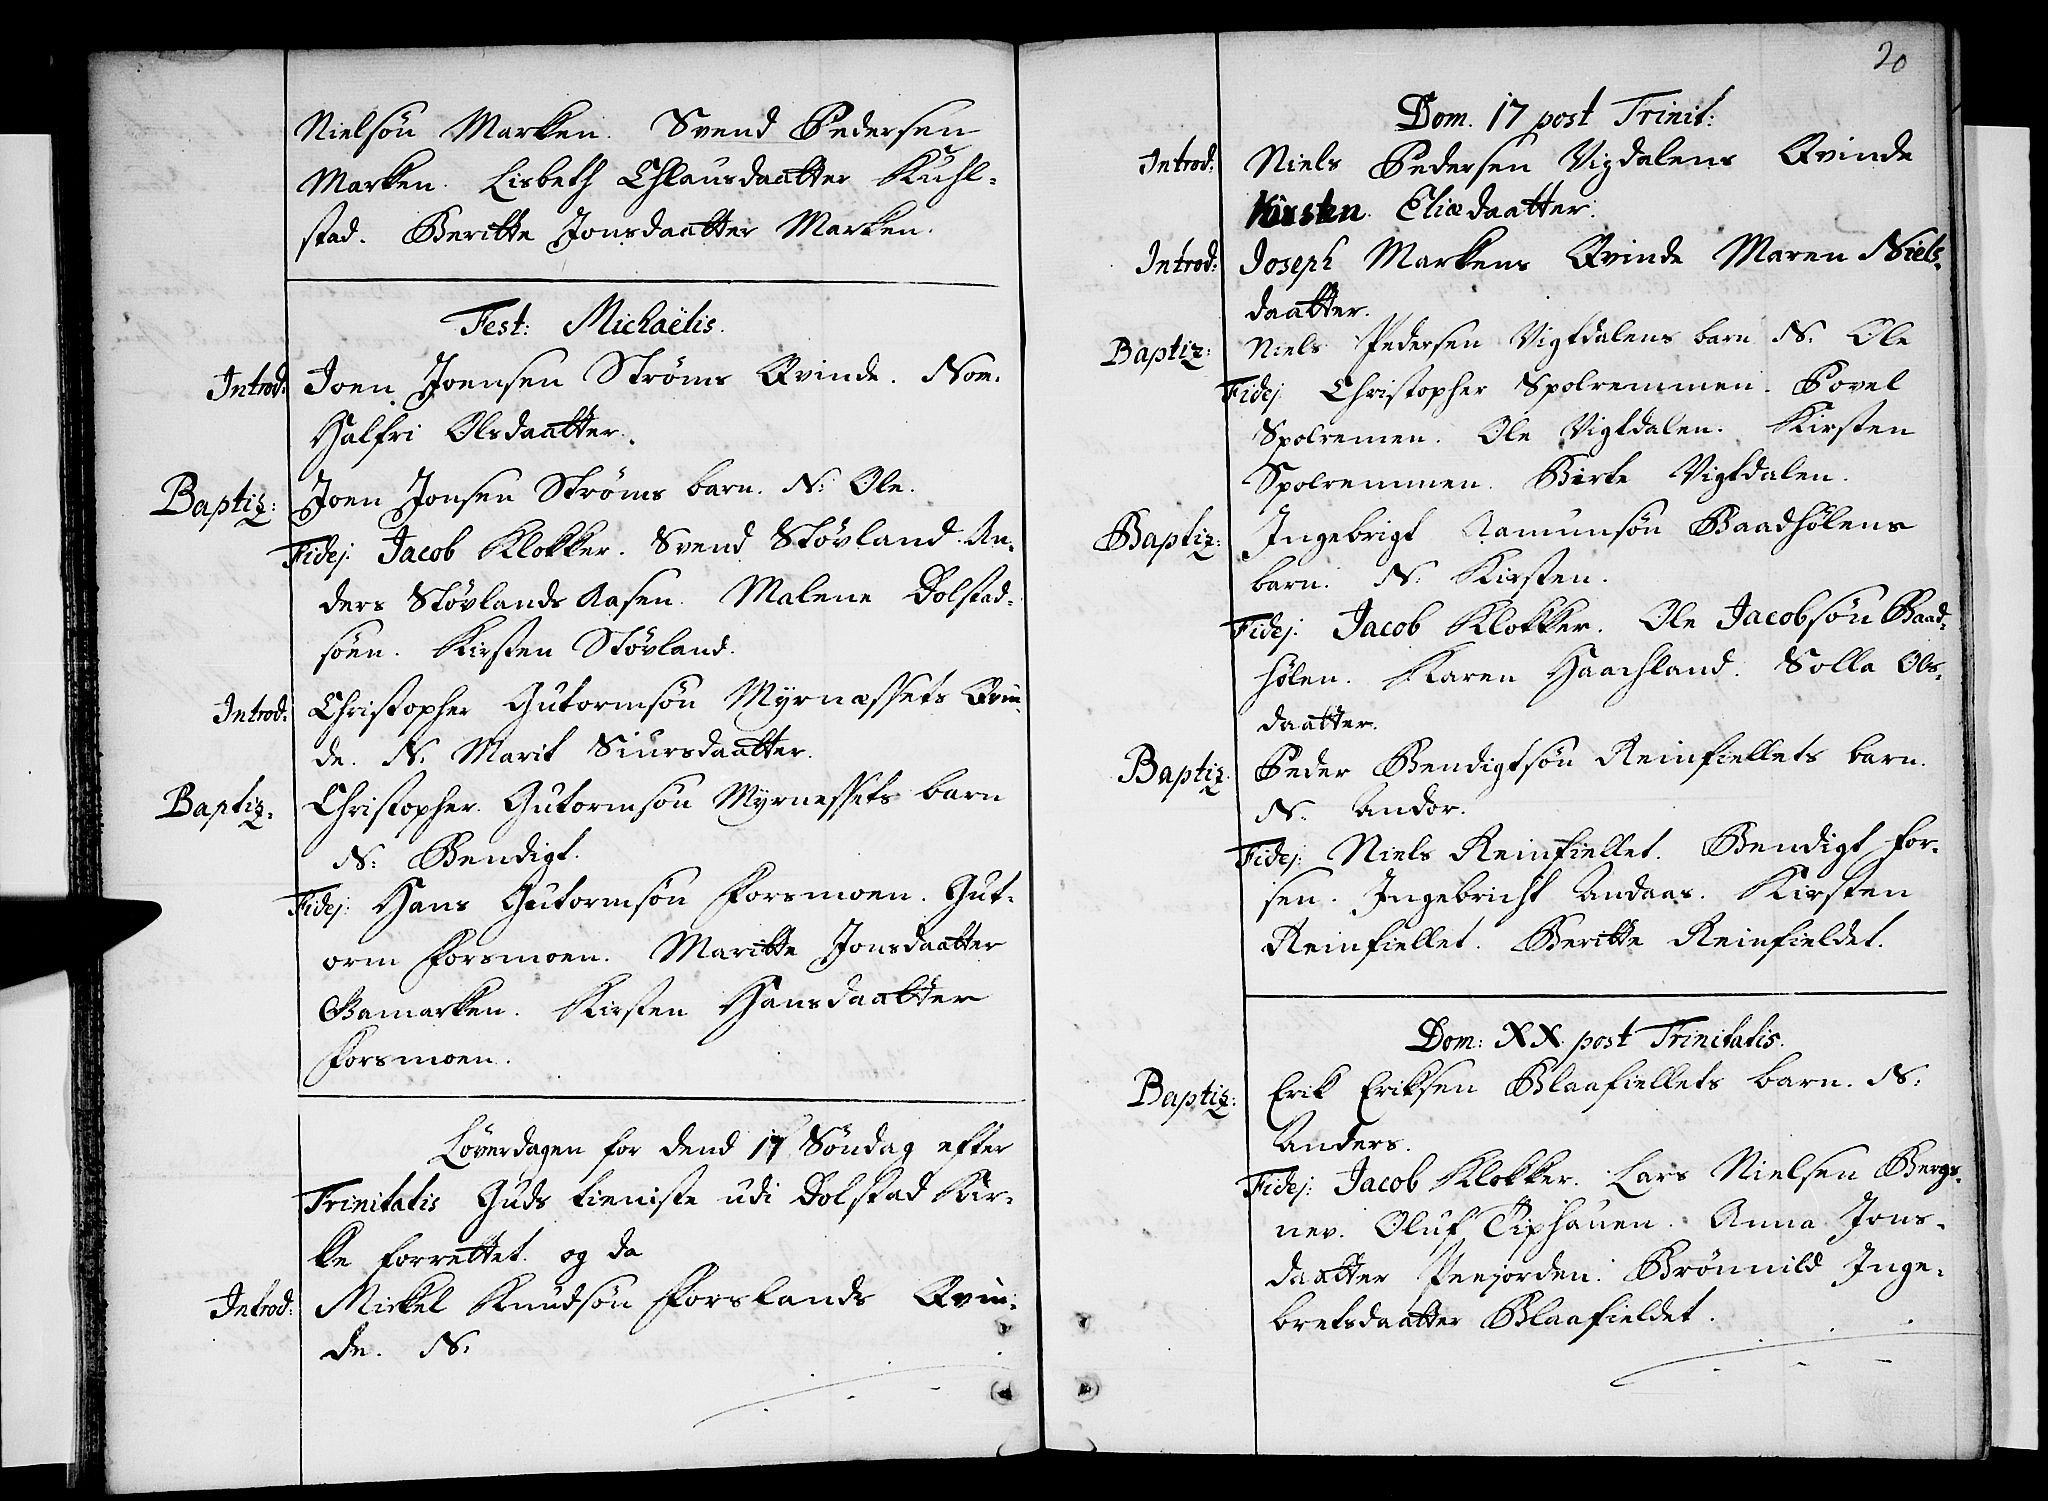 Nielsøn Marken. Svend Pedersen
Marken. Lisbeth Chlausdaatter Kuhl-
stad. Beritte Jonsdaatter Marken.
Fest: Michaëlis.
Introd: Joen Joensen Strøms Qvinde. Nom.
Halfri Olsdaatter.
Baptiz: Joen Jonsen Strøms barn. N: Ole.
Fidej: Jacob Klokker. Svend Støvland. An-
ders Støvlands Aasen. Malene Dolstad-
søen. Kirsten Støvland.
Introd: Christopher Gutormsøn Myrnæssets Qvin-
de. N. Marit Siursdaatter.
Baptiz. Christopher. Gutormsøn Myrnessets barn
N: Bendigt.
Fidej: Hans Gutormsøn Forsmoen. Gut-
orm Forsmoen. Maritte Jonsdaatter
Bamarken. Kirsten Hansdaatter
Forsmoen.
Løverdagen for dend 17 Søndag efter
Trinitatis Guds tieniste udi Dolstad Kir-
ke forrettet. og da
Introd: Mickel Knudsøn Forslands Qvin-
de. N.
20
Dom. 17 post Trinit:
Introd: Niels Pedersen Vigdalens Qvinde
Kirsten. Eliædaatter.
Introd: Joseph Markens Qvinde Maren Niels-
daatter.
Baptiz: Niels Pedersen Vigtdalens barn N. Ole
Fidej Christopher Spolremmen. Povel
Spolremen. Ole Vigtdalen. Kirsten
Spolremmen. Birte Vigtdalen.
Baptiz: Ingebrigt Aamunsøn Baadhølens
barn. N. Kirsten.
Fidej: Jacob Klokker. Ole Jacobsøn Baad-
hølen. Karen Haachland. Solla Ols-
daatter.
Baptiz. Peder Bendigtsøn Reinfiellets barn.
N. Andor.
Fidej: Niels Reinfiellet. Bendigt For-
sen. Ingebricht Andaas. Kirsten
Reinfiellet. Beritte Reinfieldet.
Dom: XX. post Trinitatis.
Baptiz: Erik Eriksen Blaafiellets barn. N:
Anders.
Fidej: Jacob Klokker. Lars Nielsen Bergs-
nev. Oluf Tiphauen. Anna Jons-
daatter Prejorden. Brønnild Inge-
bretsdaatter Blaafieldet.